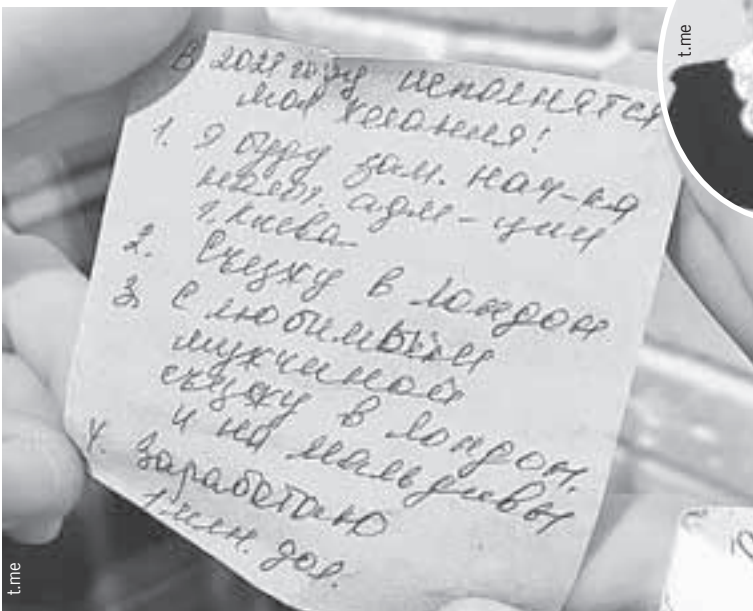 В 2021 году исполнятся
мои желания!
1. Я буду зам. нач-ка
налог. адм-ции
г. Киева
2. Съезжу в Лондон
3. С любимым
мужчиной
съезжу в Лондон.
и на Мальдивы
4. Заработаю
1 млн. дол.
t.me
t.me